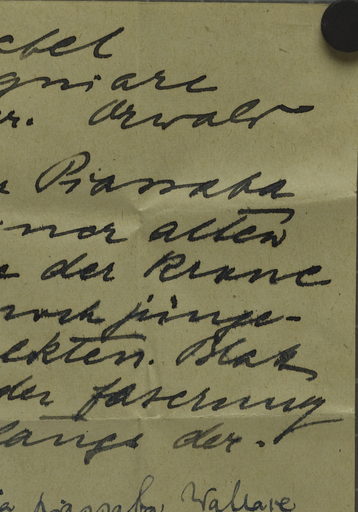 gniare
r. Oswald
Piassaba
iner alten
der Krone
noch junge-
ekten. Blatt
der Faserung
lange der.
ia piassaba Wallace